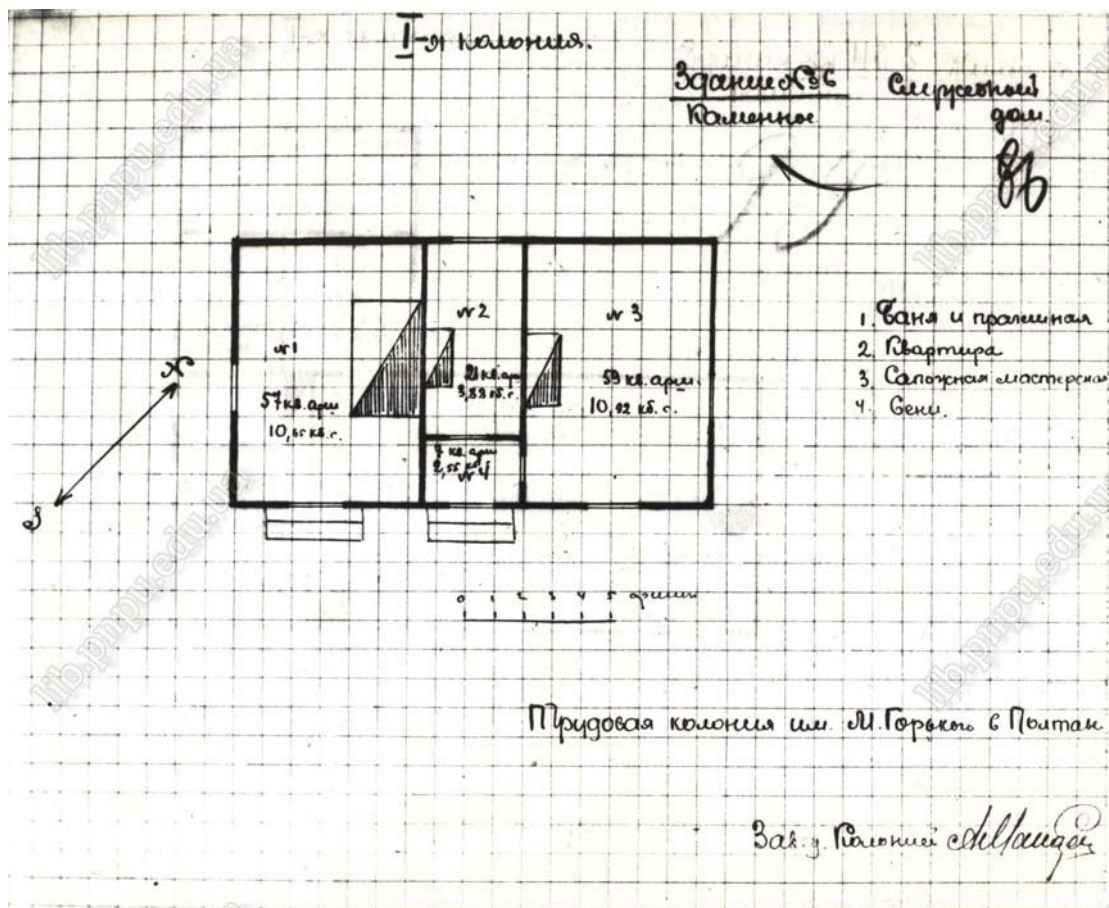 I-я колония.
Здание №6
Каменное
Служебный
дом.
№1
57 кв. арш.
10,65 кб. с.
№2
21 кв. арш.
3,88 кб. с.
№3
59 кв. арш.
10,92 кб. с.
7 кв. арш
2,55 кб
№4
N
S
1. Баня и прачешная
2. Квартира
3. Сапожная мастерская
4. Сени.
0 1 2 3 4 5 аршин
Трудовая колония им. М. Горького в Полтав
Зав. Колонией
lib.pnpu.edu.ua
lib.pnpu.edu.ua
lib.pnpu.edu.ua
lib.pnpu.edu.ua